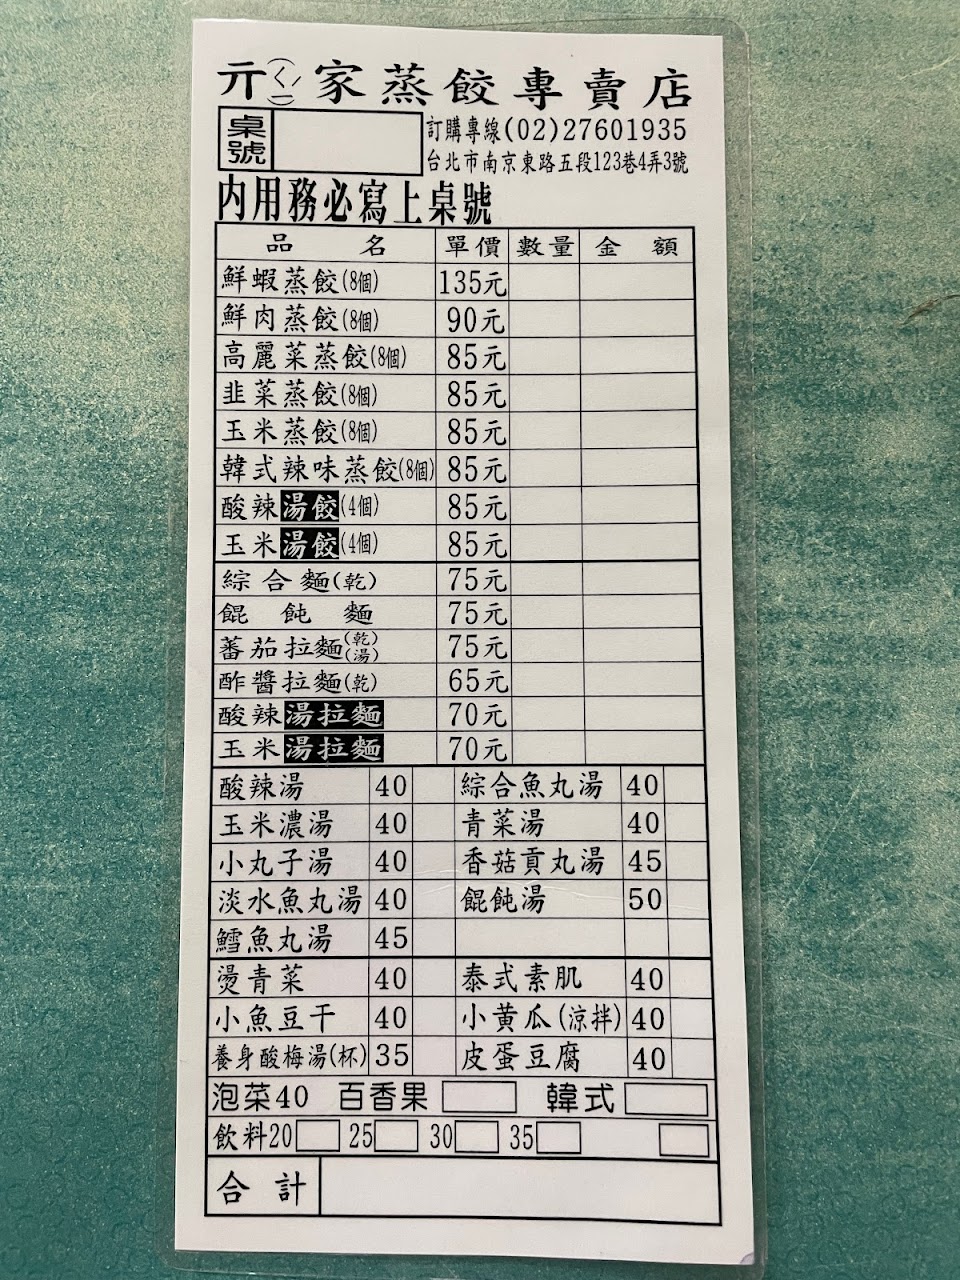 亓(ㄑㄧ)家蒸餃專賣店
桌號
訂購專線(02)27601935
台北市南京東路五段123巷4弄3號
內用務必寫上桌號
品名 單價 數量 金額
鮮蝦蒸餃(8個) 135元
鮮肉蒸餃(8個) 90元
高麗菜蒸餃(8個) 85元
韭菜蒸餃(8個) 85元
玉米蒸餃(8個) 85元
韓式辣味蒸餃(8個) 85元
酸辣湯餃(4個) 85元
玉米湯餃(4個) 85元
綜合麵(乾) 75元
餛飩麵 75元
蕃茄拉麵(乾)(湯) 75元
酢醬拉麵(乾) 65元
酸辣湯拉麵 70元
玉米湯拉麵 70元
酸辣湯 40 綜合魚丸湯 40
玉米濃湯 40 青菜湯 40
小丸子湯 40 香菇貢丸湯 45
淡水魚丸湯 40 餛飩湯 50
鱈魚丸湯 45
燙青菜 40 泰式素肌 40
小魚豆干 40 小黃瓜(涼拌) 40
養身酸梅湯(杯) 35 皮蛋豆腐 40
泡菜40 百香果 韓式
飲料20 25 30 35
合計